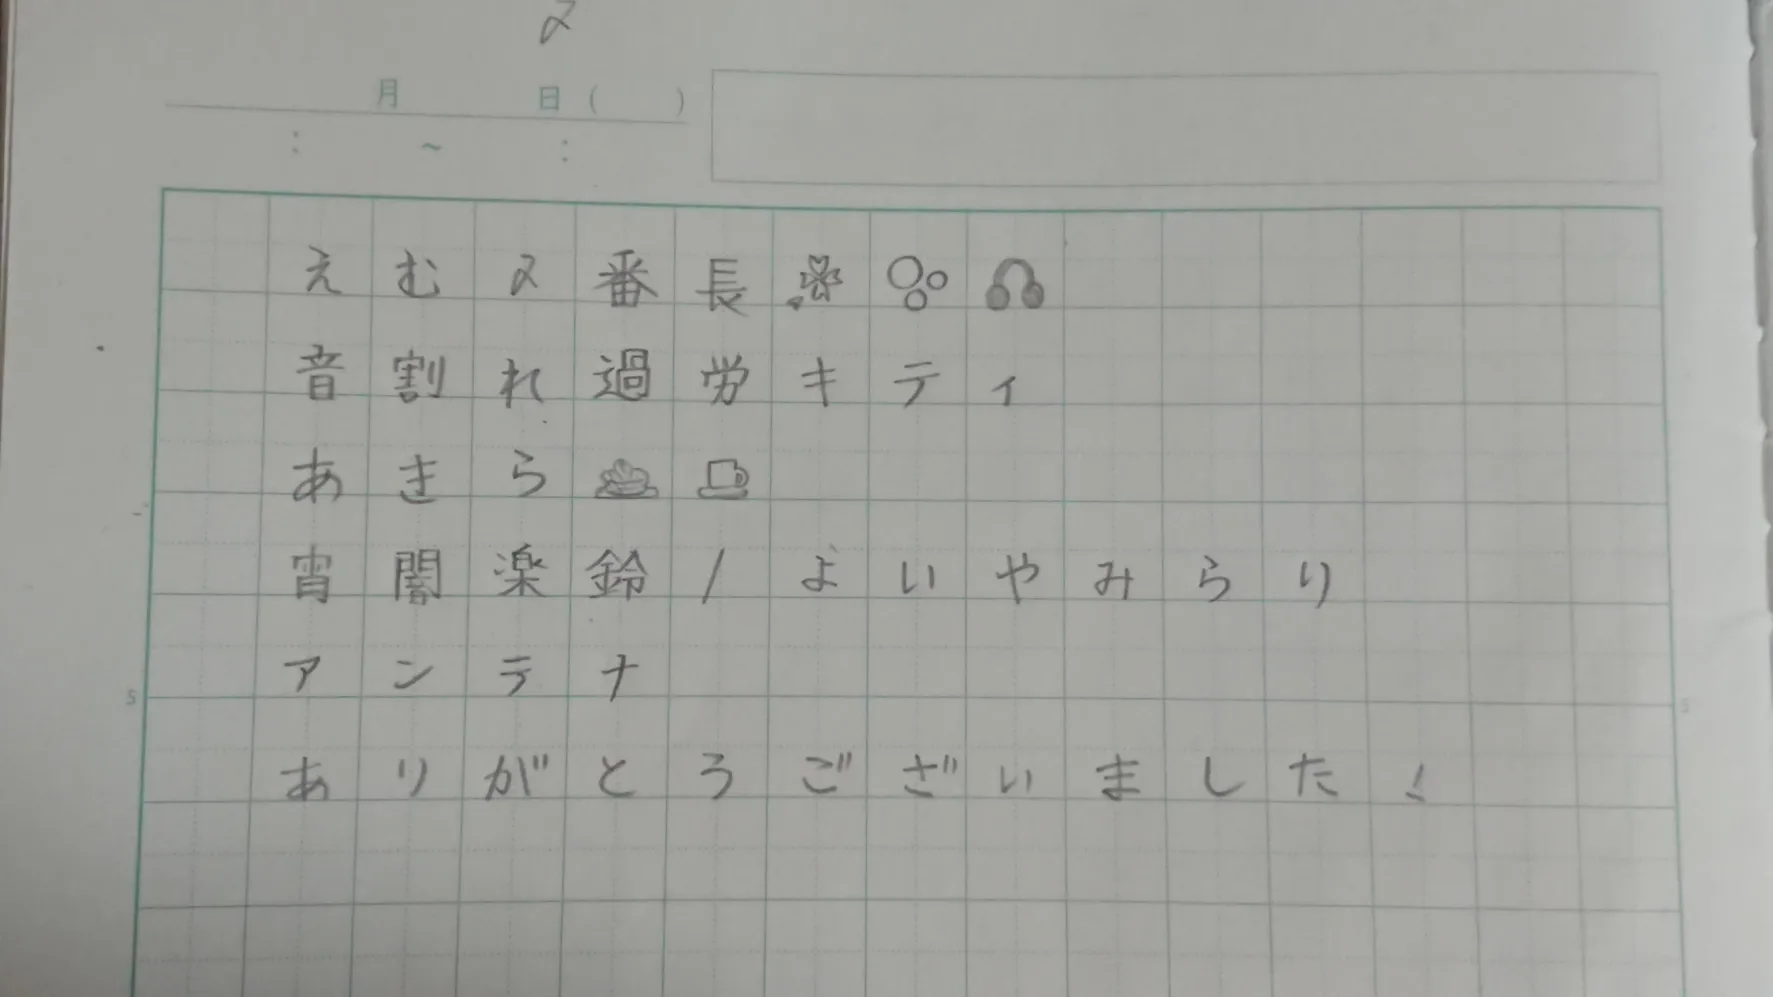 〆
月 日( )
: ~ :
えむ〆番長🌸🫧🎧
音割れ過労キティ
あきら
宵闇楽鈴/よいやみらり
アンテナ
5 5
ありがとうございました!